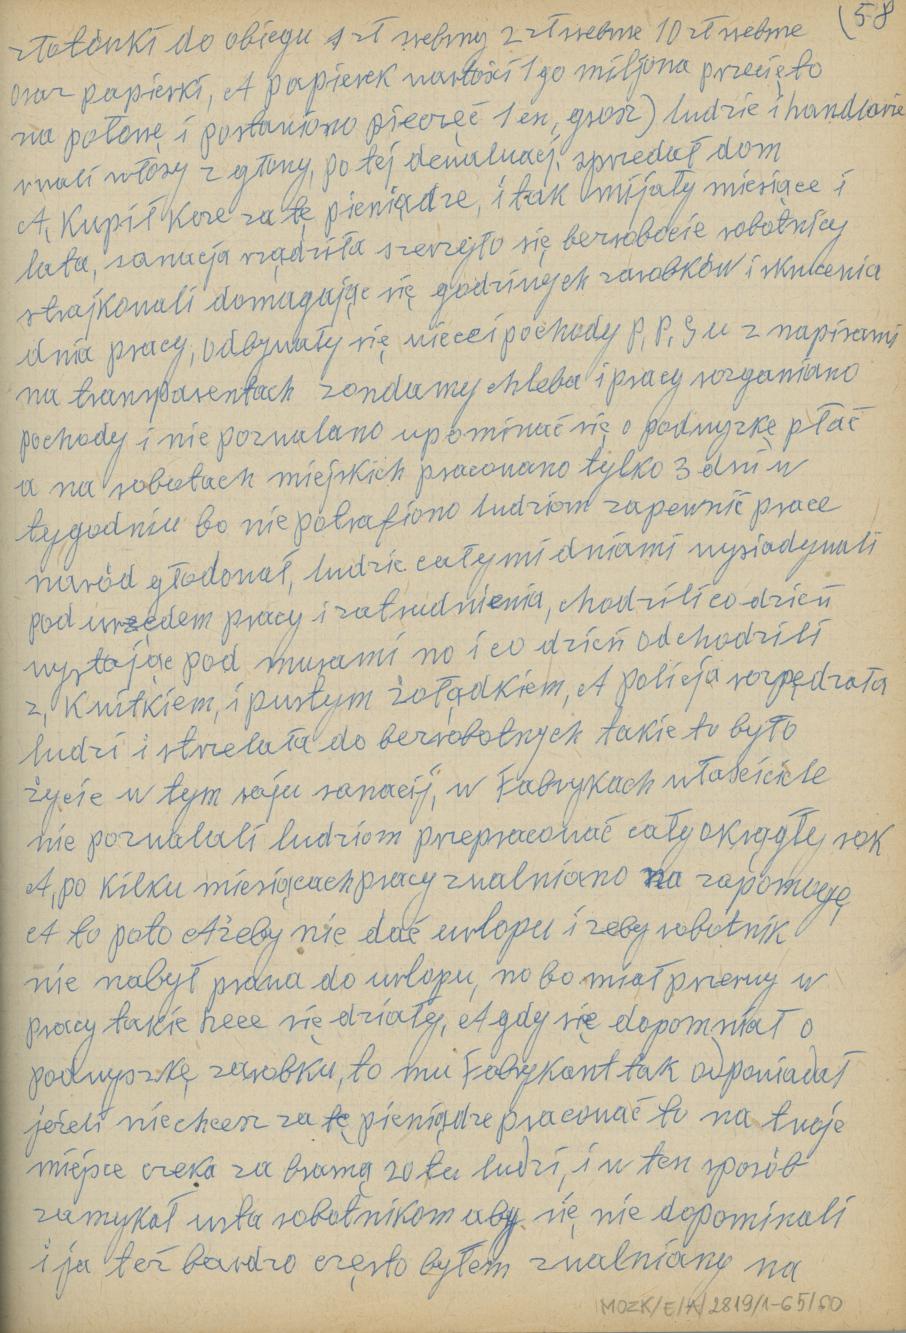 (58
złotówki do obiegu 1 zł srebrny 2 zł srebrne 10 zł srebrne
oraz papierki, A papierek wartości 1go miljona przecięto
na połowę i postawiono pieczęć 1en, grosz) ludzie i handlarze
rwali włosy z głowy, po tej dewaluacji, sprzedał dom
A, Kupił Koze za tę pieniądze, i tak mijały miesiące i
lata, sanacja rządziła szerzyło się bezrobocie robotnicy
strajkowali domagając się godziwych zarobków i skrucenia
dnia pracy, odbywały się wiece i pochody P, P, S u z napisami
na transparentach rondamy chleba i pracy rozganiano
pochody i nie pozwalano upominać się o podwyzkę płać
a na robotach miejskich pracowano tylko 3 dni w
tygodniu bo nie potrafiono ludziom zapewnić prace
naród głodował, ludzie całymi dniami wysiadywali
pod urzędem pracy i zatrudnienia, chodzili co dzień
wystając pod murami no i co dzień odchodzili
z, Kwitkiem, i pustym żołądkiem, A policja rozpędzała
ludzi i strzelała do bezrobotnych takie to było
życie w tym raju sanacij, w Fabrykach właściciele
nie pozwalali ludziom przepracować cały okrągły rok
A, po kilku miesiącach pracy zwalniano na zapomogę
A to poto Ażeby nie dać urlopu i zeby robotnik
nie nabył prawa do urlopu, no bo miał przerwy w
pracy takie hece się działy, A gdy się dopomniał o
podwyszkę zarobku, to mu Fabrykant tak odpowiadał
jeżeli niechcesz za tę pieniądze pracować to na twoje
miejsce czeka za bramą 20 tu ludzi, i w ten sposób
zamykał usta robotnikom aby się nie dopominali
i ja też bardzo często byłem zwalniany na
MOZK/E/A/2819/1-65/60